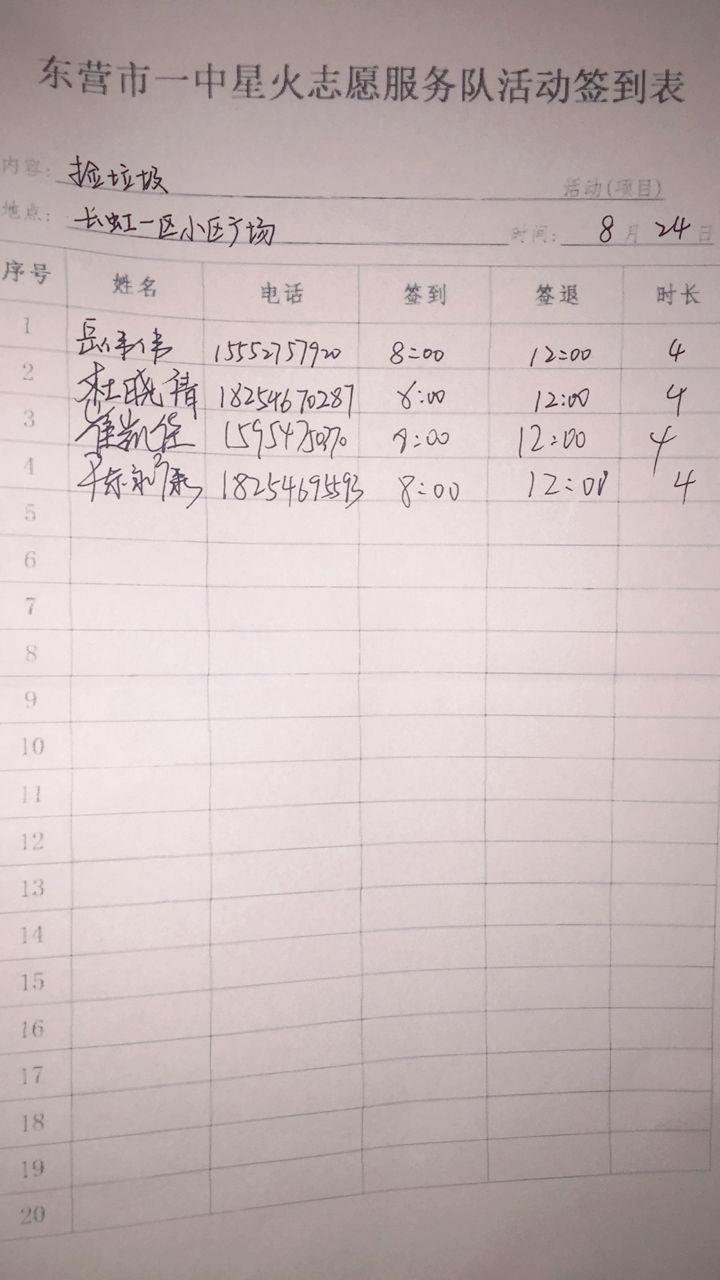 东营市一中星火志愿服务队活动签到表
内容: 捡垃圾 活动(项目)
地点: 长虹一区小区广场 时间: 8月24日
序号 姓名 电话 签到 签退 时长
1 岳伟伟 15552757920 8:00 12:00 4
2 杜晓倩 18254670287 8:00 12:00 4
3 崔凯佳 15954750370 8:00 12:00 4
4 18254695593 8:00 12:00 4
5
6
7
8
9
10
11
12
13
14
15
16
17
18
19
20